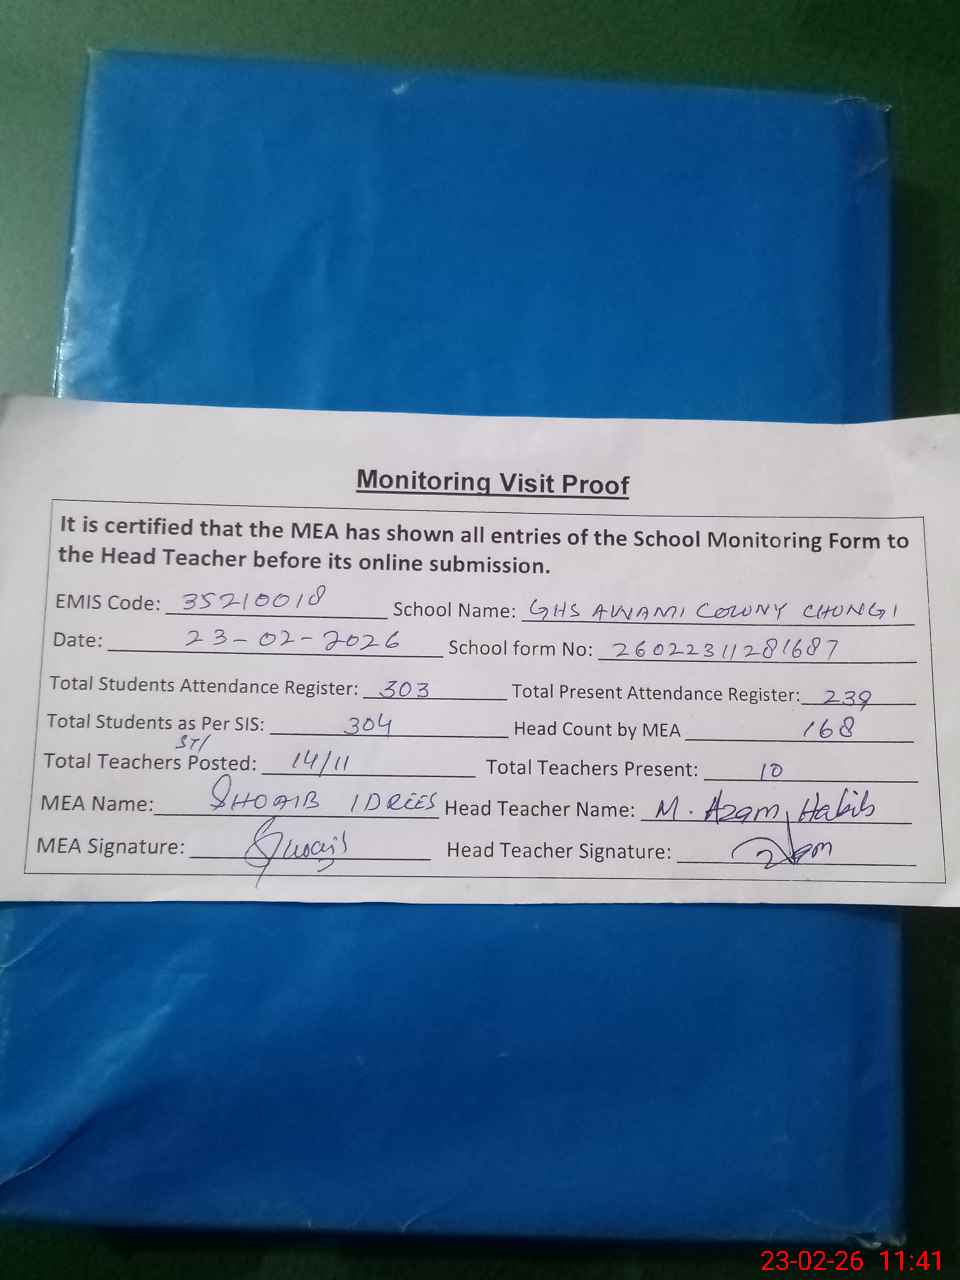 Monitoring Visit Proof
It is certified that the MEA has shown all entries of the School Monitoring Form to
the Head Teacher before its online submission.
EMIS Code: 35210018 School Name: GHS AWAMI COLONY CHUNGI
Date: 23-02-2026 School form No: 26022311281687
Total Students Attendance Register: 303 Total Present Attendance Register: 239
Total Students as Per SIS: 304 Head Count by MEA 168
ST/
Total Teachers Posted: 14/11 Total Teachers Present: 10
MEA Name: SHOAIB IDREES Head Teacher Name: M. Azam Habib
MEA Signature: Shoaib Head Teacher Signature:
23-02-26 11:41